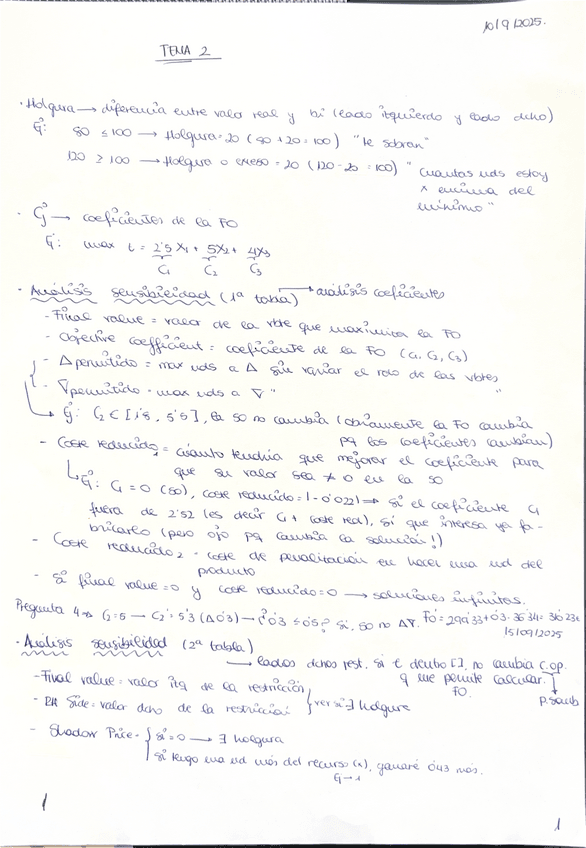 10/9/2025.
TEMA 2
· Holgura → diferencia entre valor real y bi (lado izquierdo y lado dcho)
Ej: 80 ≤ 100 → Holgura = 20 (80 + 20 = 100) "le sobran"
120 ≥ 100 → Holgura o exceso = 20 (120 - 20 = 100) "cuantas uds estoy
x encima del
mínimo"
· Cj → coeficientes de la FO
Ej: max z = 2'5X1 + 5X2 + 4X3
C1 C2 C3
· Análisis sensibilidad (1ª tabla) → análisis coeficientes
- Final value = valor de la vble que maximiza la FO
- Objective coefficient = coeficiente de la FO (C1, C2, C3)
- Δ permitido = max uds a Δ sin variar el rdo de las vbles
- ∇ permitido = max uds a ∇ "
Ej: C2 ∈ [ , 5'5], la SO no cambia (obviamente la FO cambia
pq los coeficientes cambian)
- Coste reducido1 = cuánto tendría que mejorar el coeficiente para
que su valor sea ≠ 0 en la SO
Ej: C1 = 0 (SO), coste reducido = |-0'022| ⇒ si el coeficiente C1
fuera de 2'52 (es decir C1 + coste red), sí que interesa ya fa-
bricarlo (pero ojo pq cambia la solución!)
- Coste reducido2 = coste de penalización en hacer una ud del
producto
- Si final value = 0 y coste reducido = 0 → soluciones infinitas.
Pregunta 4 ⇒ C2 = 5 → C2' = 5'3 (Δ0'3) → ¿0'3 ≤ 0'5? Sí, SO no ΔV. FO =
15/09/2025
· Análisis sensibilidad (2ª tabla)
→ lados dchos rest. Si € dentro [], no cambia C.op.
q me permite calcular.
FO. p.somb
- Final value = valor izq de la restricción
- RH Side = valor dcho de la restricción } ver si ∃ holgura
- Shadow Price - { si = 0 → ∃ holgura
si tengo una ud más del recurso (x), ganaré 0'43 más.
Ej → 1
1
1